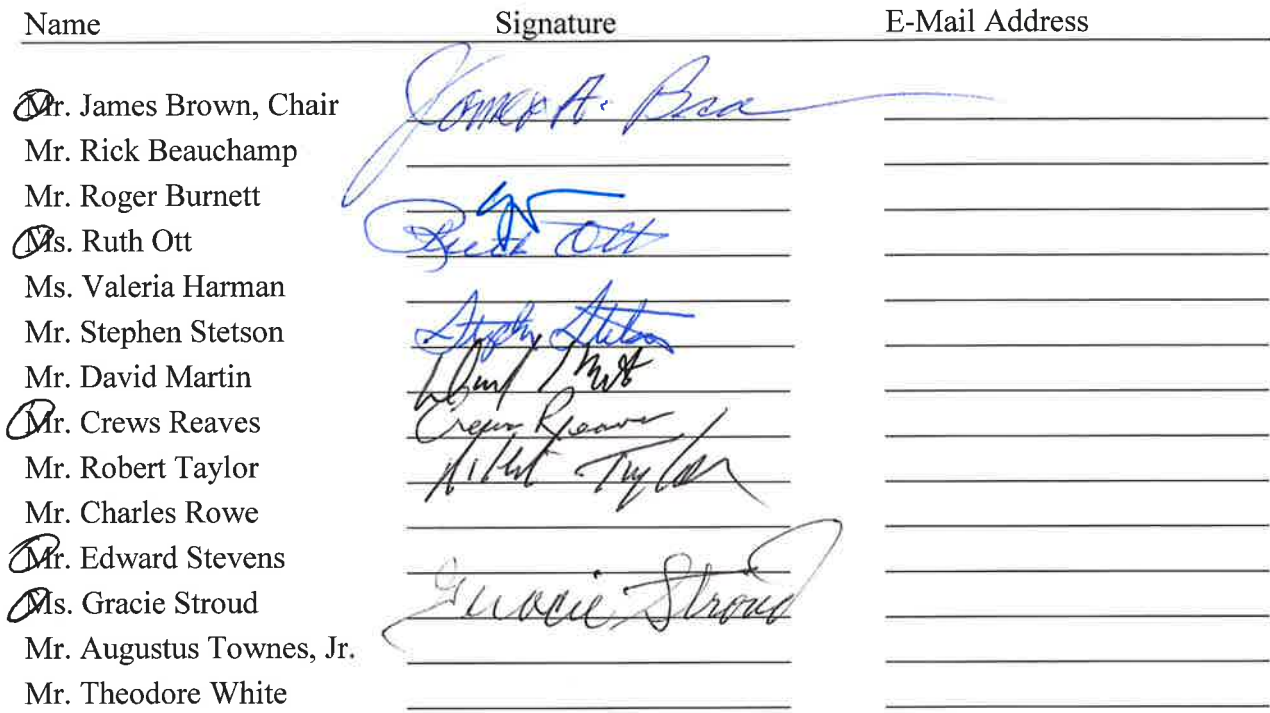 Name Signature E-Mail Address
Mr. James Brown, Chair James A. Bro
Mr. Rick Beauchamp
Mr. Roger Burnett
Ms. Ruth Ott Ruth Ott
Ms. Valeria Harman
Mr. Stephen Stetson Stephen Stetson
Mr. David Martin David Martin
Mr. Crews Reaves Crews Reaves
Mr. Robert Taylor Robert Taylor
Mr. Charles Rowe
Mr. Edward Stevens
Ms. Gracie Stroud Gracie Stroud
Mr. Augustus Townes, Jr.
Mr. Theodore White